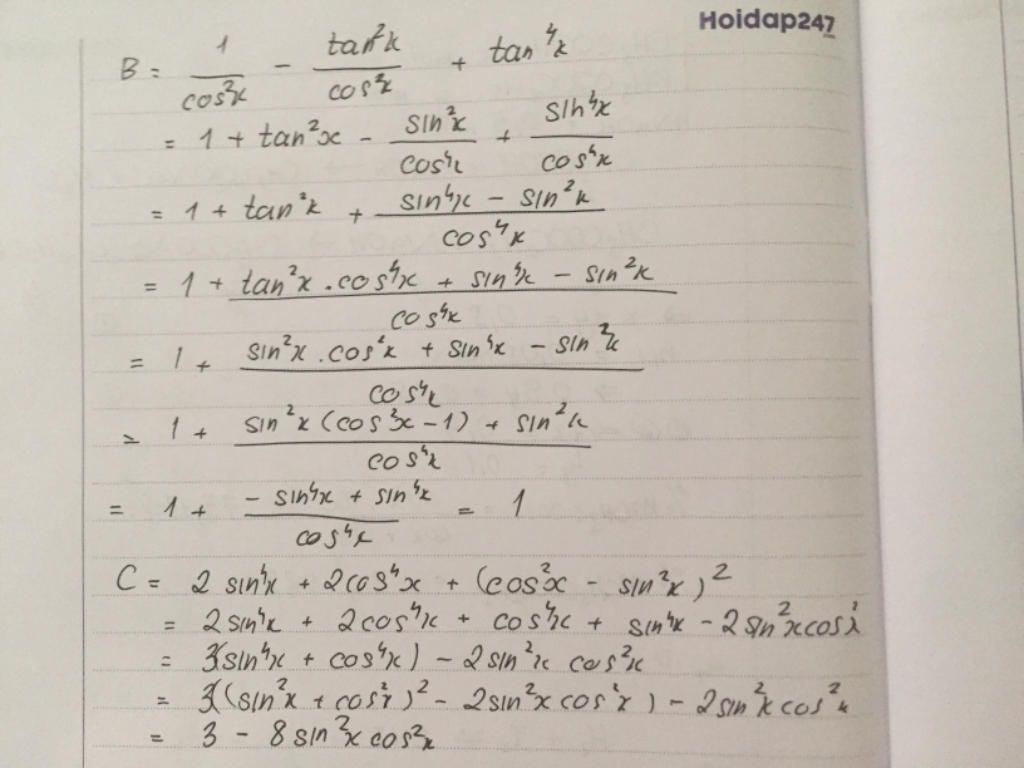 Hoidap247
B = 1/cos²x - tan²x/cos²x + tan⁴x
= 1 + tan²x - sin²x/cos⁴x + sin⁴x/cos⁴x
= 1 + tan²x + (sin⁴x - sin²x)/cos⁴x
= 1 + (tan²x . cos⁴x + sin⁴x - sin²x)/cos⁴x
= 1 + (sin²x . cos²x + sin⁴x - sin²x)/cos⁴x
= 1 + (sin²x (cos²x - 1) + sin²x)/cos⁴x
= 1 + (- sin⁴x + sin⁴x)/cos⁴x = 1
C = 2 sin⁴x + 2cos⁴x + (cos²x - sin²x)²
= 2sin⁴x + 2cos⁴x + cos⁴x + sin⁴x - 2sin²xcos²x
= 3(sin⁴x + cos⁴x) - 2sin²x cos²x
= 3((sin²x + cos²x)² - 2sin²x cos²x) - 2sin²x cos²x
= 3 - 8sin²x cos²x